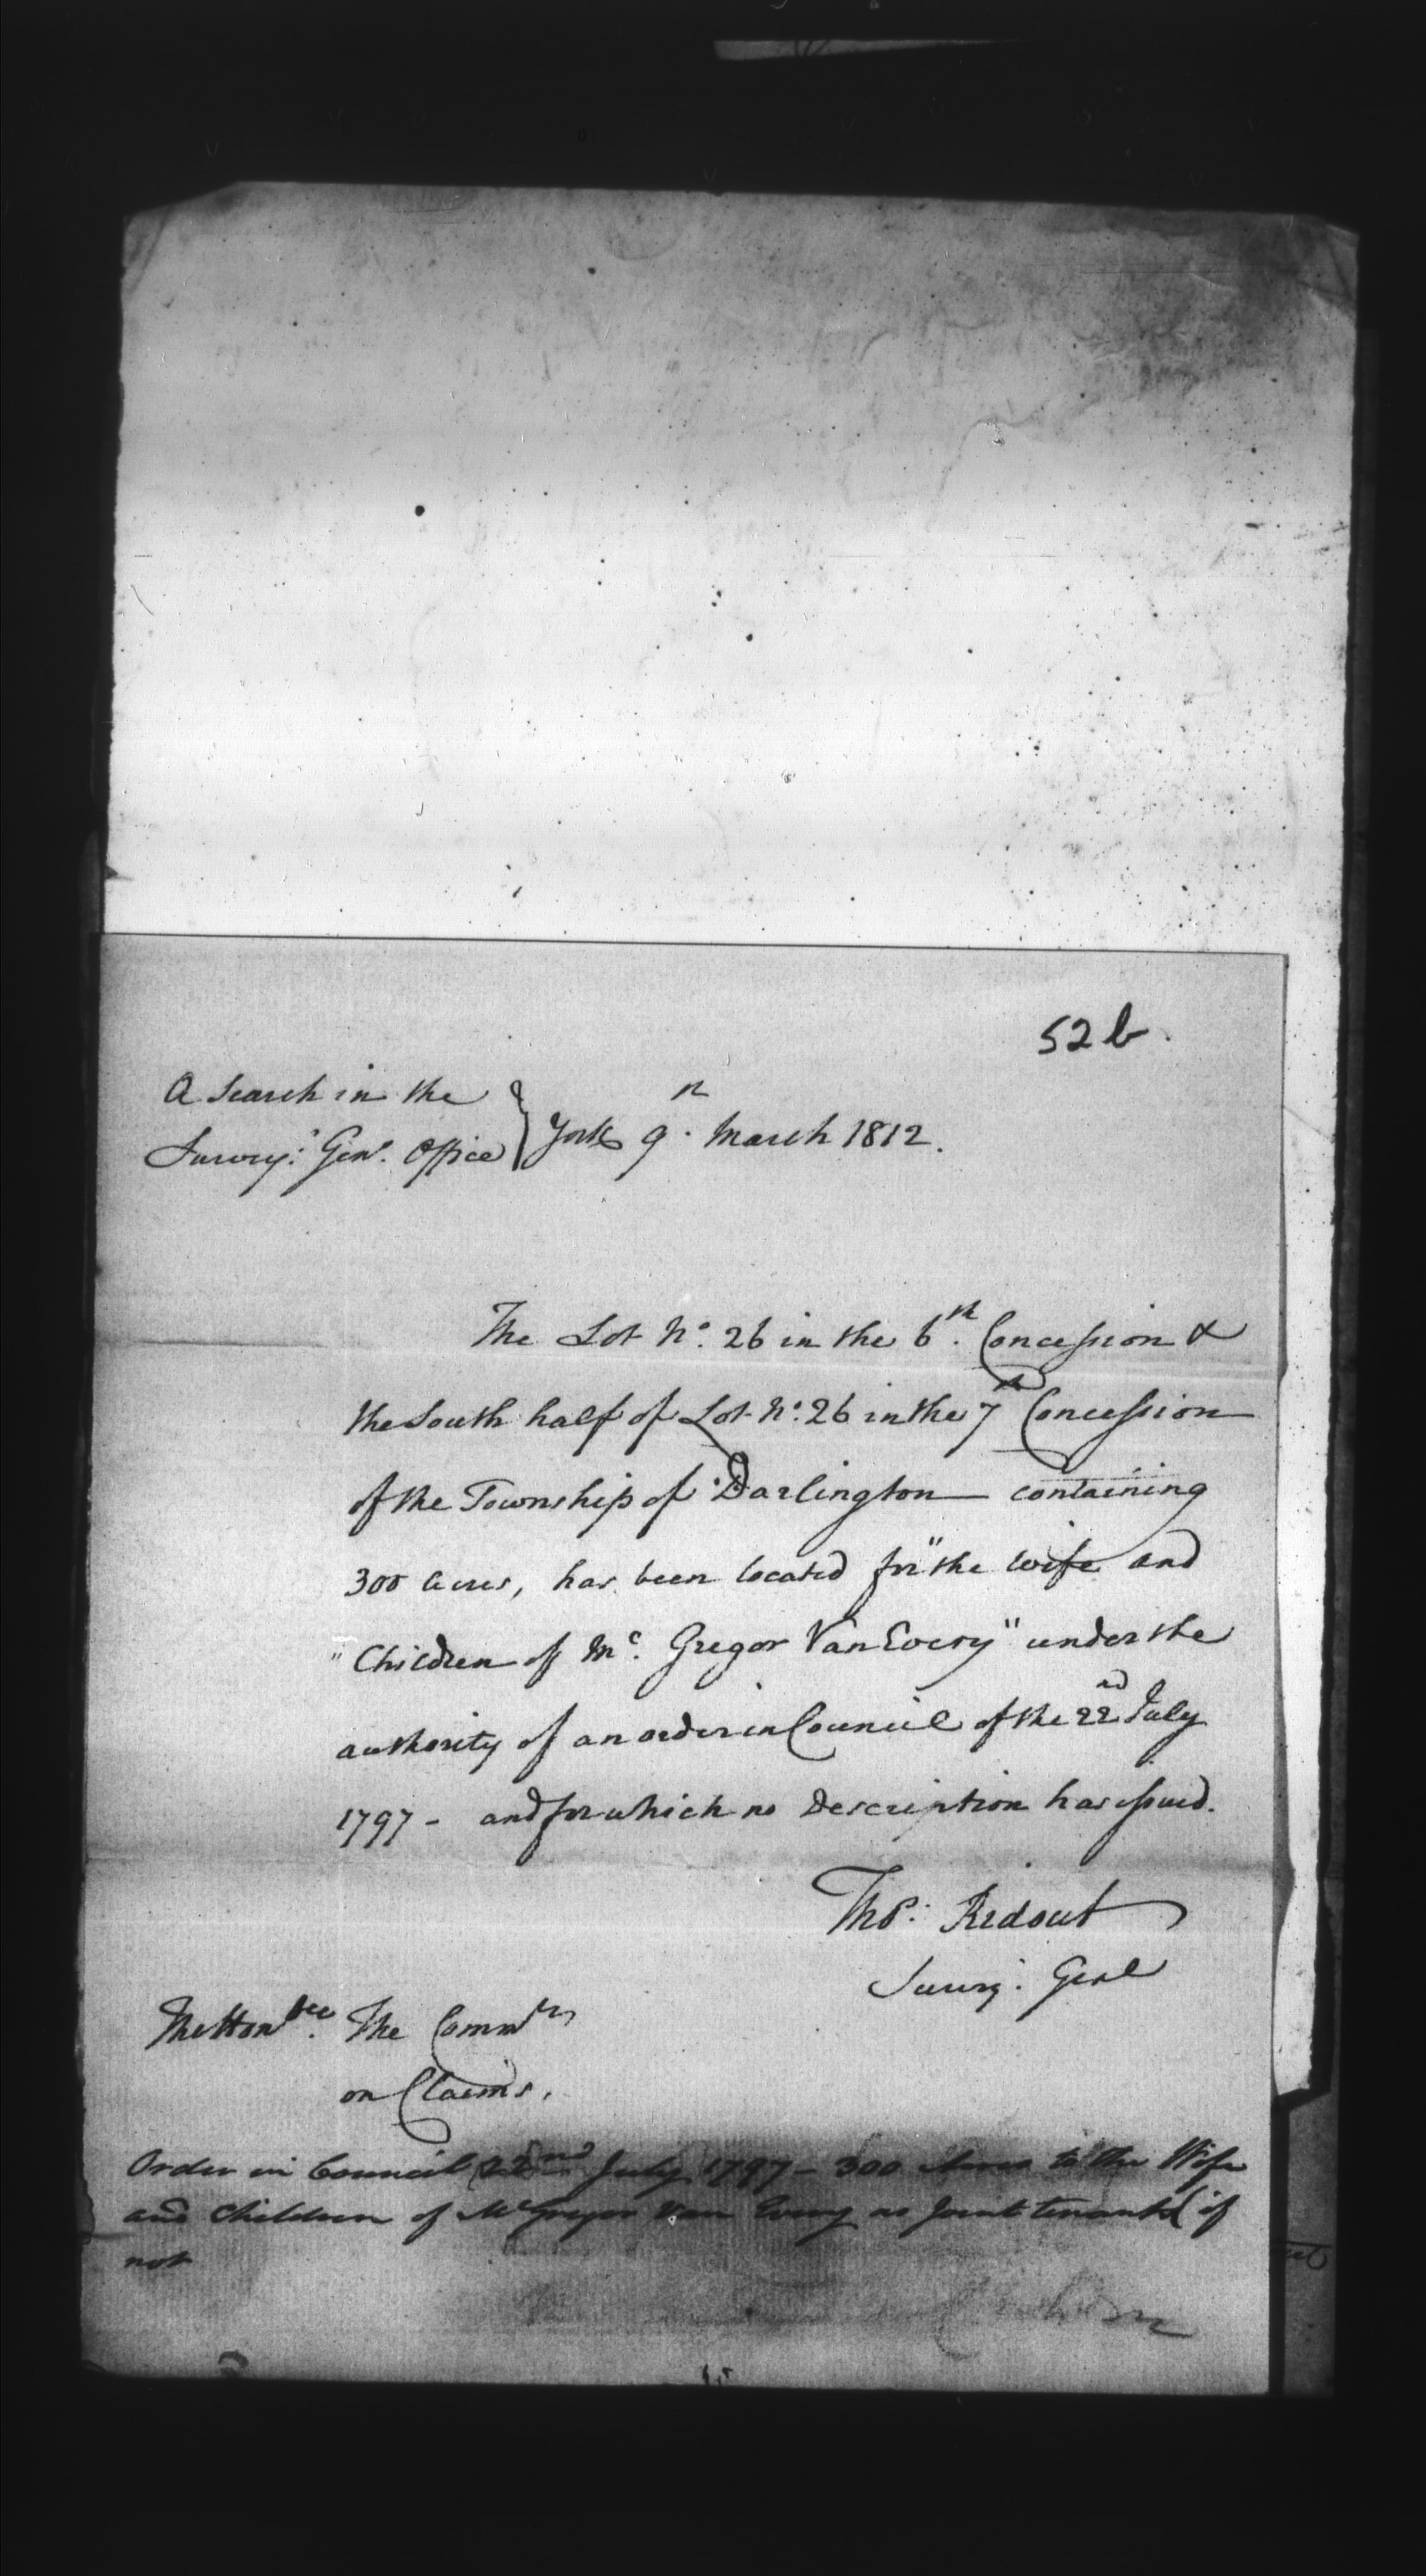 52 b.
A Search in the
Survey.r Gen.l Office } York 9.th March 1812.
The Lot N.o 26 in the 6.th Concession &
the South half of Lot N.o 26 in the 7th Concession
of the Township of Darlington containing
300 Acres, has been located for "the wife and
"Children of Mc. Gregor VanEvery" under the
authority of an order in Council of the 22nd July
1797 - and for which no Description has issued.
Thos. Ridout
Surv.g Genl
The Hon.ble The Comm.rs
on Claims.
Order in Council 22nd July 1797 - 300 Acres to the Wife
and Children of McGregor Van Every as Joint tenants (if
not